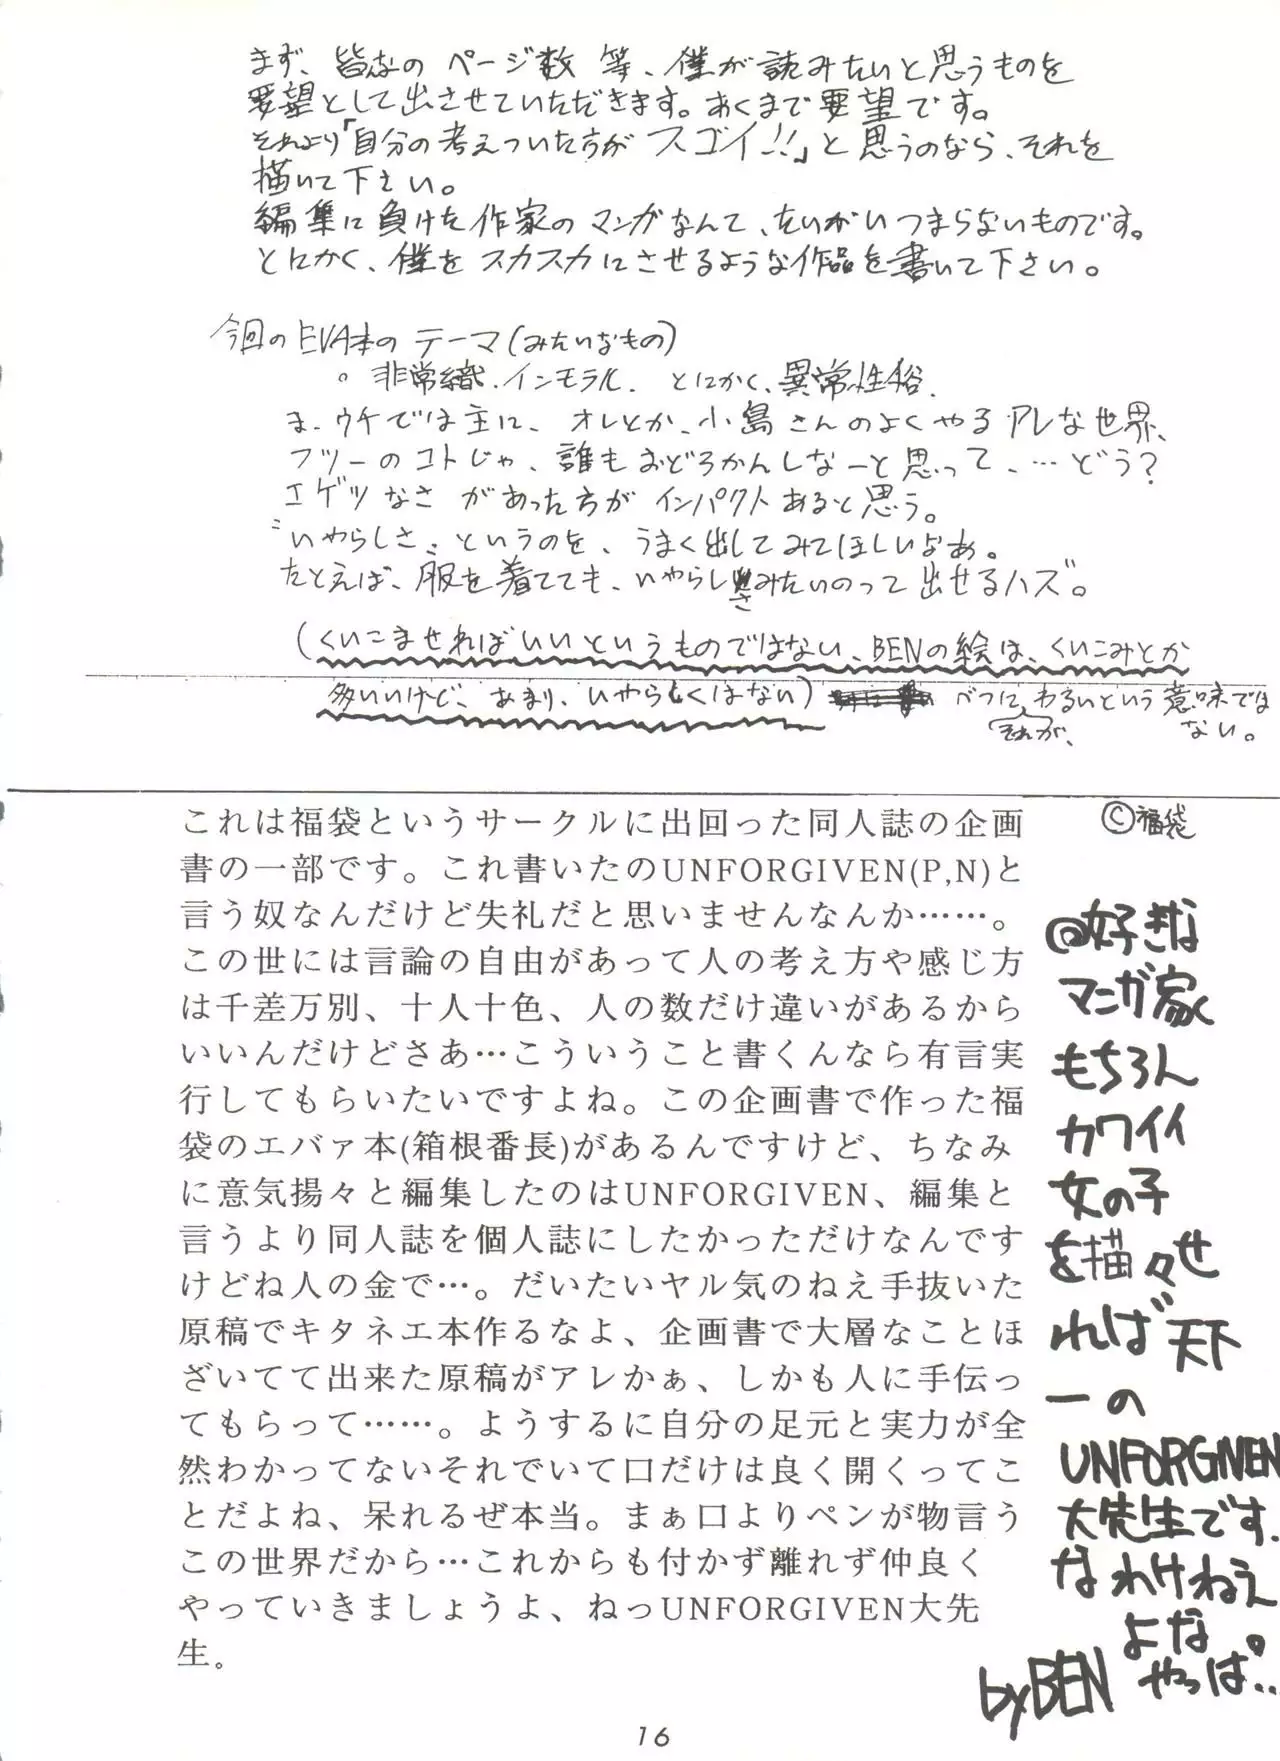 まず、皆なのページ数等、僕が読みたいと思うものを
要望として出させていただきます。あくまで要望です。
それより「自分の考えついた方がスゴイ!!」と思うのなら、それを
描いて下さい。
編集に負けた作家のマンガなんて、たいがいつまらないものです。
とにかく、僕をスカスカにさせるような作品を書いて下さい。
今回のEVA本のテーマ(みたいなもの)
。非常織.インモラル.とにかく、異常性俗.
ま、ウチでは主に、オレとか、小島さんのよくやるアレな世界、
フツーのコトじゃ、誰もおどろかんしなーと思って、…どう?
エゲツなさがあった方がインパクトあると思う。
〝いやらしさ〟というのを、うまく出してみてほしいなあ。
たとえば、服を着てても、いやらしさみたいのって出せるハズ。
(くいこませればいいというものではない、BENの絵は、くいこみとか
多いいけど、あまり、いやらしくはない) べつにそれが、わるいという意味では
ない。
©福袋
これは福袋というサークルに出回った同人誌の企画
書の一部です。これ書いたのUNFORGIVEN(P,N)と
言う奴なんだけど失礼だと思いませんなんか……。
この世には言論の自由があって人の考え方や感じ方
は千差万別、十人十色、人の数だけ違いがあるから
いいんだけどさあ…こういうこと書くんなら有言実
行してもらいたいですよね。この企画書で作った福
袋のエバァ本(箱根番長)があるんですけど、ちなみ
に意気揚々と編集したのはUNFORGIVEN、編集と
言うより同人誌を個人誌にしたかっただけなんです
けどね人の金で…。だいたいヤル気のねえ手抜いた
原稿でキタネエ本作るなよ、企画書で大層なことほ
ざいてて出来た原稿がアレかぁ、しかも人に手伝っ
てもらって……。ようするに自分の足元と実力が全
然わかってないそれでいて口だけは良く開くってこ
とだよね、呆れるぜ本当。まぁ口よりペンが物言う
この世界だから…これからも付かず離れず仲良く
やっていきましょうよ、ねっUNFORGIVEN大先
生。
@好きな
マンガ家
もちろん
カワイイ
女の子
を描々せ
れば天下
一の
UNFORGIVEN
大先生です.
なわけねえ
よな。
やっぱ…
by BEN
16